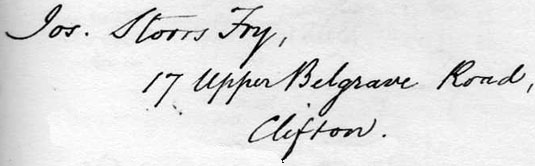 Jos. Storrs Fry,
17 Upper Belgrave Road,
Clifton.